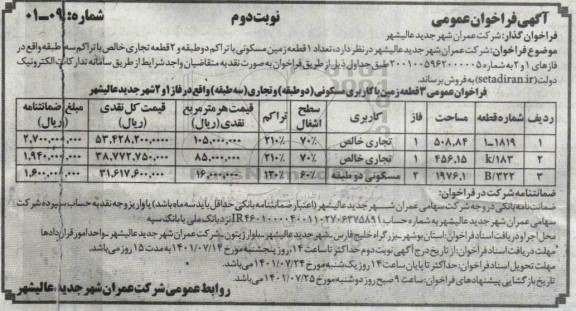 آگهی فراخوان عمومی نوبت دوم شماره: ۰۹-۰۱
فراخوان گذار: شرکت عمران شهر جدید عالیشهر
موضوع فراخوان: شرکت عمران شهر جدید عالیشهر در نظر دارد، تعداد ۱ قطعه زمین مسکونی با تراکم دو طبقه و ۲ قطعه تجاری خالص با تراکم سه طبقه واقع در
فازهای ۱ و ۲ به شماره ۲۰۰۱۰۰۵۹۶۲۰۰۰۰۰۵ طبق جداول ذیل از طریق فراخوان به صورت نقد به متقاضیان واجد شرایط از طریق سامانه تدارکات الکترونیک
دولت (setadiran.ir) به فروش برساند.
فراخوان عمومی ۳ قطعه زمین با کاربری مسکونی (دو طبقه) و تجاری (سه طبقه) واقع در فاز ۱ و ۲ شهر جدید عالیشهر
ردیف شماره قطعه مساحت فاز کاربری سطح اشغال تراکم قیمت هر متر مربع نقدی (ریال) قیمت کل نقدی (ریال) مبلغ ضمانتنامه (ریال)
۱ ۱-۱۸۱۹ ۵۰۸.۸۴ ۱ تجاری خالص ۷۰% ۲۱۰% ۱۰۵.۰۰۰.۰۰۰ ۵۳.۴۲۸.۲۰۰.۰۰۰ ۲.۷۰۰.۰۰۰.۰۰۰
۲ k/۱۸۳ ۴۵۶.۱۵ ۱ تجاری خالص ۷۰% ۲۱۰% ۸۵.۰۰۰.۰۰۰ ۳۸.۷۷۲.۷۵۰.۰۰۰ ۱.۹۴۰.۰۰۰.۰۰۰
۳ B/۳۲۲ ۱۹۷۶.۱ ۲ مسکونی دو طبقه ۶۰% ۱۲۰% ۱۶.۰۰۰.۰۰۰ ۳۱.۶۱۷.۶۰۰.۰۰۰ ۱.۶۰۰.۰۰۰.۰۰۰
ضمانتنامه شرکت در فراخوان:
ضمانت نامه بانکی در وجه شرکت سهامی عمران شهر جدید عالیشهر (اعتبار ضمانتنامه بانکی حداقل باید سه ماه باشد) یا واریز وجه نقد به حساب سپرده شرکت
سهامی عمران شهر جدید عالیشهر به شماره حساب نزد بانک ملی با بانک سپه
محل اجرا و دریافت اسناد فراخوان: استان بوشهر - بزرگراه خلیج فارس - شهر جدید عالیشهر - بلوار زیتون - شرکت عمران شهر جدید عالیشهر - واحد امور قراردادها
مهلت دریافت اسناد فراخوان: از تاریخ درج آگهی نوبت دوم حداکثر تا ساعت ۱۴، روز پنجشنبه مورخ ۱۴۰۱/۰۷/۱۴ به مدت ۱۵ روز می باشد.
مهلت تحویل اسناد فراخوان: حداکثر تا پایان ساعت ۱۴ روز یک شنبه مورخ ۱۴۰۱/۰۷/۲۴ می باشد.
تاریخ بازگشایی پیشنهادهای فراخوان: ساعت ۹ صبح روز دوشنبه مورخ ۱۴۰۱/۰۷/۲۵ می باشد.
روابط عمومی شرکت عمران شهر جدید عالیشهر